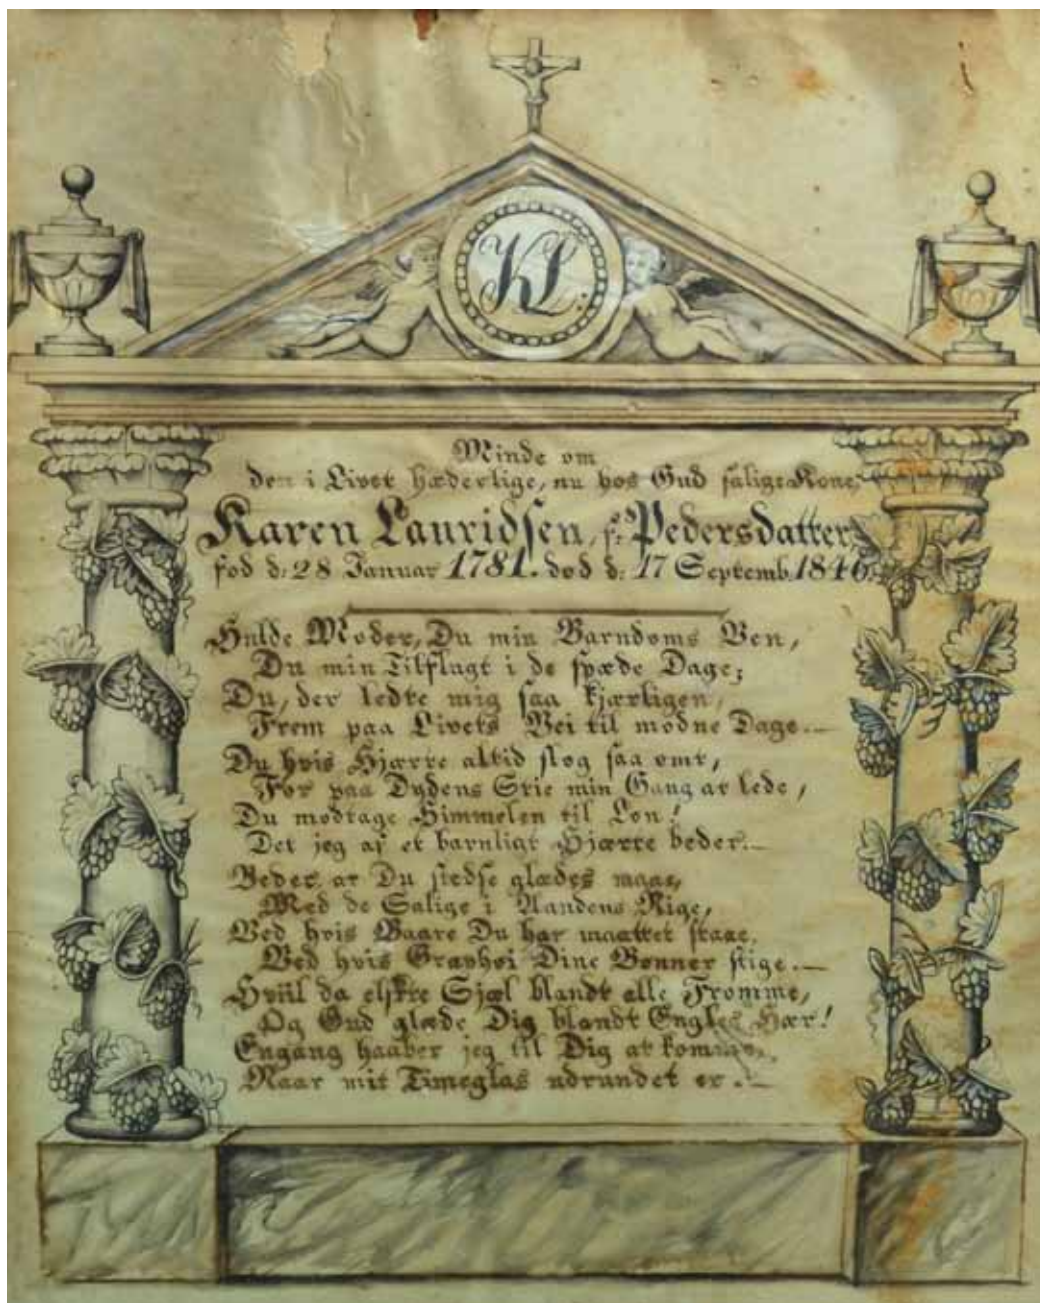 KL.
Minde om
den i Livet hæderlige, nu hos Gud salige Kone,
Karen Lauridsen, f: Pedersdatter,
fød d: 28 Januar 1781. død d: 17 Septemb. 1846.
Hulde Moder, Du min Barndoms Ven,
Du min Tilflugt i de spæde Dage;
Du, der ledte mig saa kjærligen,
Frem paa Livets Vei til modne Dage.—
Du hvis Hjærte altid slog saa ømt,
For paa Dydens Stie min Gang at lede,
Du modtage Himmelen til Løn!
Det jeg af et barnligt Hjærte beder.—
Beder at Du stedse glædes maae,
Med de Salige i Aandens Rige,
Ved hvis Baare Du har maattet staae,
Ved hvis Gravhøi Dine Bønner stige.—
Hviil da elskte Sjæl blandt alle Fromme,
Og Gud glæde Dig blandt Engles Hær!
Engang haaber jeg til Dig at komme,
Naar mit Timeglas udrundet er.—